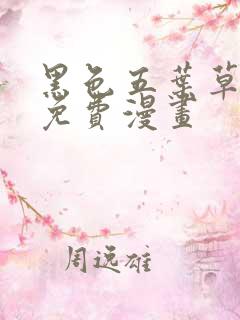 黑色五葉草
免費漫畫
周逸雄